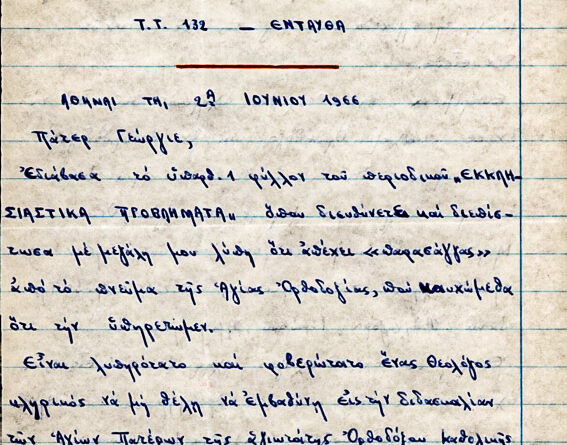 Τ.Τ. 132 — ΕΝΤΑΥΘΑ
ΑΘΗΝΑΙ ΤΗ, 2ᾳ ΙΟΥΝΙΟΥ 1966
Πάτερ Γεώργιε,
Ἐδιάβασα τό ὑπ' ἀριθ. 1 φύλλον τοῦ περιοδικοῦ „ΕΚΚΛΗ-
ΣΙΑΣΤΙΚΑ ΠΡΟΒΛΗΜΑΤΑ„ ὅπου διευθύνετε καί διεπίσ-
τωσα μέ μεγάλη μου λύπη ὅτι ἀπέχει «παρασάγγας»
ἀπό τό πνεῦμα τῆς Ἁγίας Ὀρθοδοξίας, πού καυχώμεθα
ὅτι τήν ὑπηρετῶμεν.
Εἶναι λυπηρότατο καί φοβερώτατο ἕνας Θεολόγος
κληρικός νά μή θέλη νά ἐμβαθύνη εἰς τήν διδασκαλίαν
τῶν Ἁγίων Πατέρων τῆς ἁγιωτάτης Ὀρθοδόξου καθολικῆς